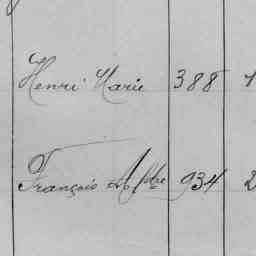 Henri Marie 388
François Alphse 934 2